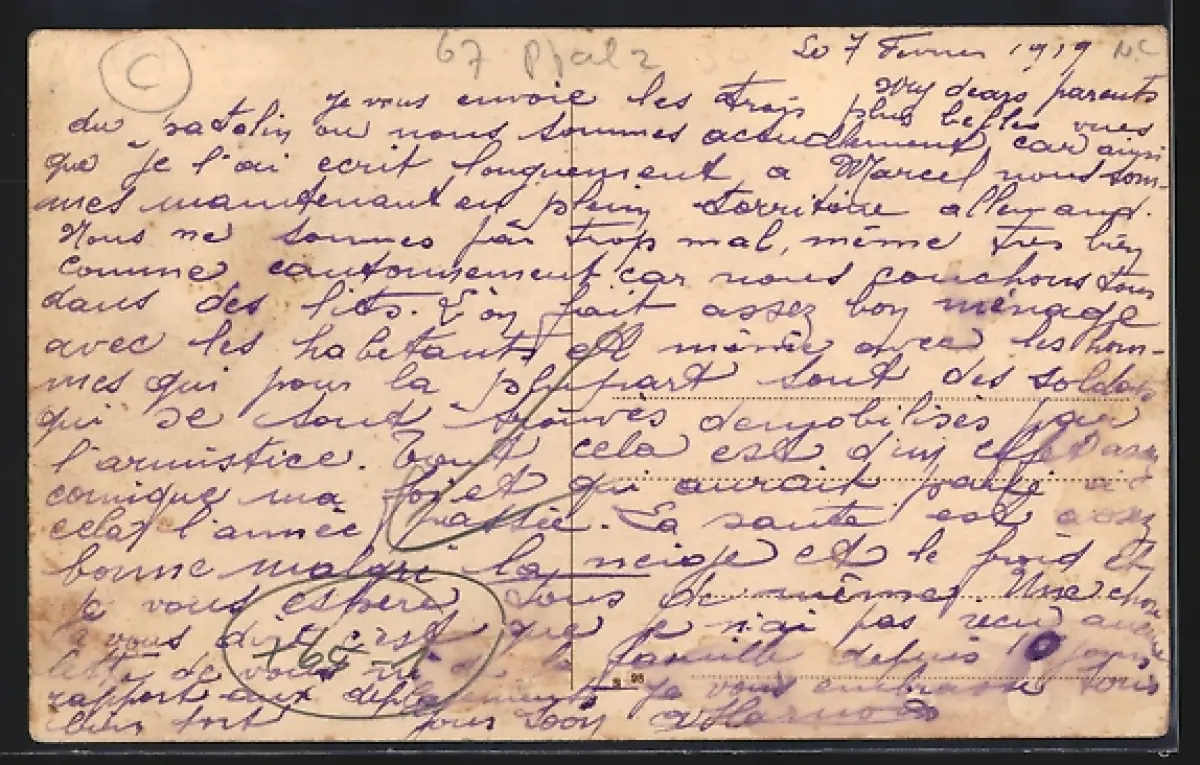 C
67 Pfalz
Le 7 Fevrier 1919 N.C
My dears parents
Je vous envoie les trois plus belles vues
du où nous sommes actuellement, car ainsi
que je l'ai ecrit longuement a Marcel nous som-
mes maintenant en plein territoire allemand.
Nous ne sommes pas trop mal, même tres bien
comme cantonnement car nous couchons tous
dans des lits. L'on fait assez bon ménage
avec les habitants et même avec les hom-
mes qui pour la plupart sont des soldats
qui se sont trouvés demobilises par
l'armistice. Tout cela est d'un effet assez
comique ma foi et qui aurait
cela, l'année passée. La santé est assez
bonne malgré la neige et le froid et
je vous espère tous de même. Une chose
vous c'est que je n'ai pas recu aucune
lettre de vous ni de la famille depuis jours
rapport aux Je vous embrasse tous
bien fort